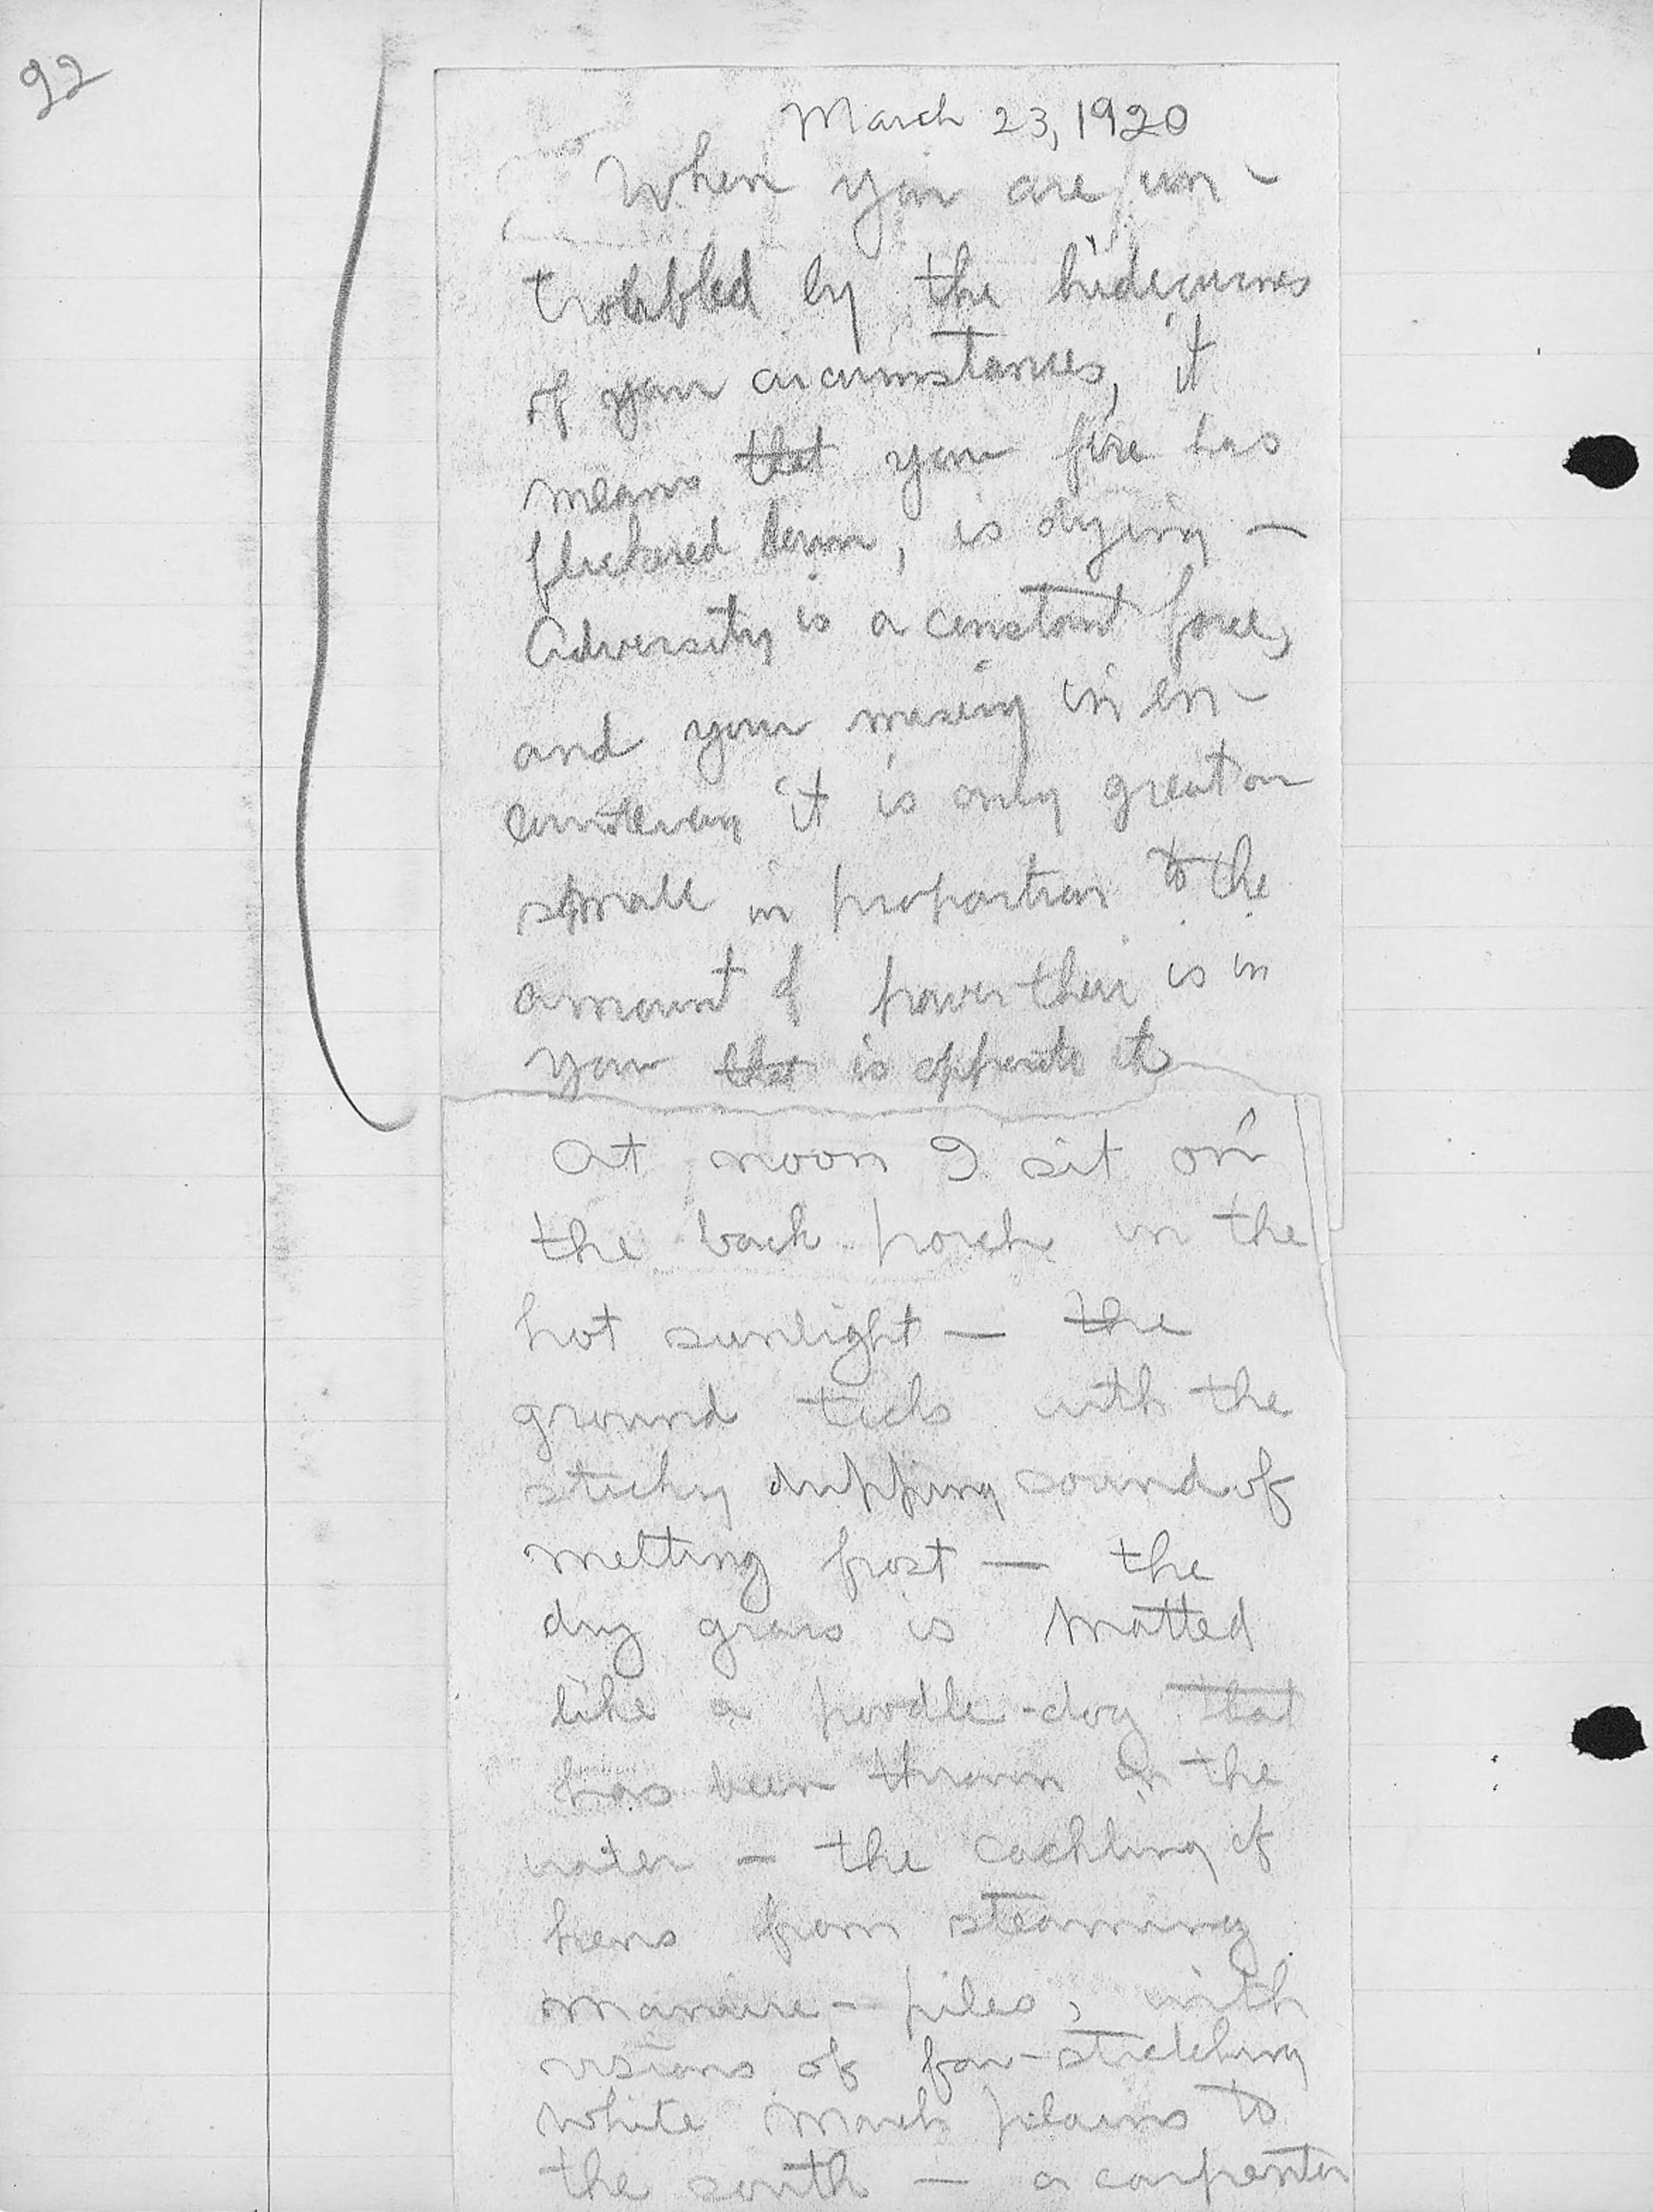 92
March 23, 1920
When you are un-
troubled by the hideousness
of your circumstances, it
means that your fire has
flickered down, is dying —
Adversity is a constant force,
and your misery in en-
countering it is only great or
small in proportion to the
amount of power there is in
you that is opposite it
At noon I sit on
the back porch in the
hot sunlight — the
ground ticks with the
sticky dripping sound of
melting frost — the
dry grass is matted
like a poodle-dog that
has been thrown in the
water — the cackling of
hens from steaming
manure-piles, with
visions of far-stretching
white March plains to
the south — a carpenter